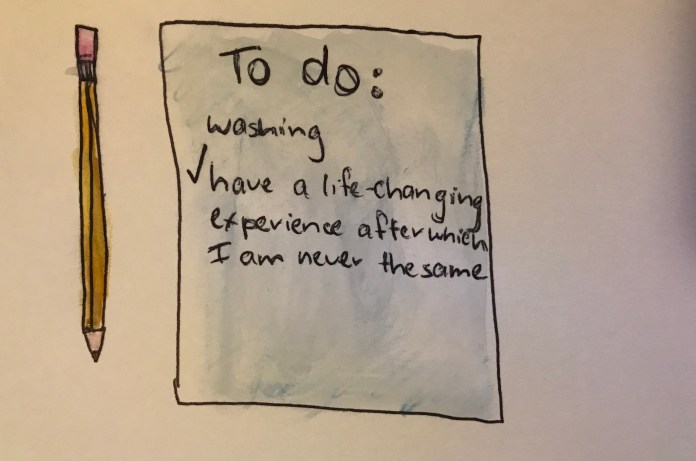 To do:
washing
✓have a life-changing
experience after which
I am never the same